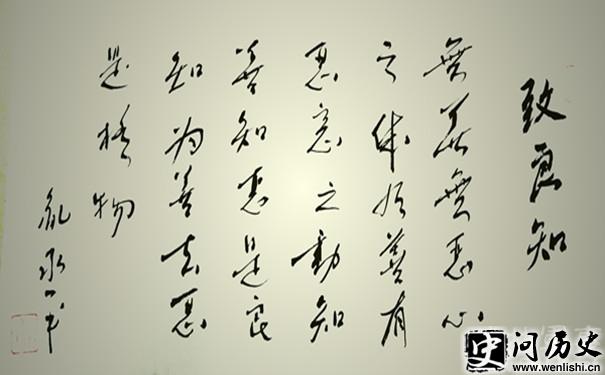 致良知
無善無惡心
之体有善有
惡意之動知
善知惡是良
知为善去惡
是格物
问历史
www.wenlishi.cn